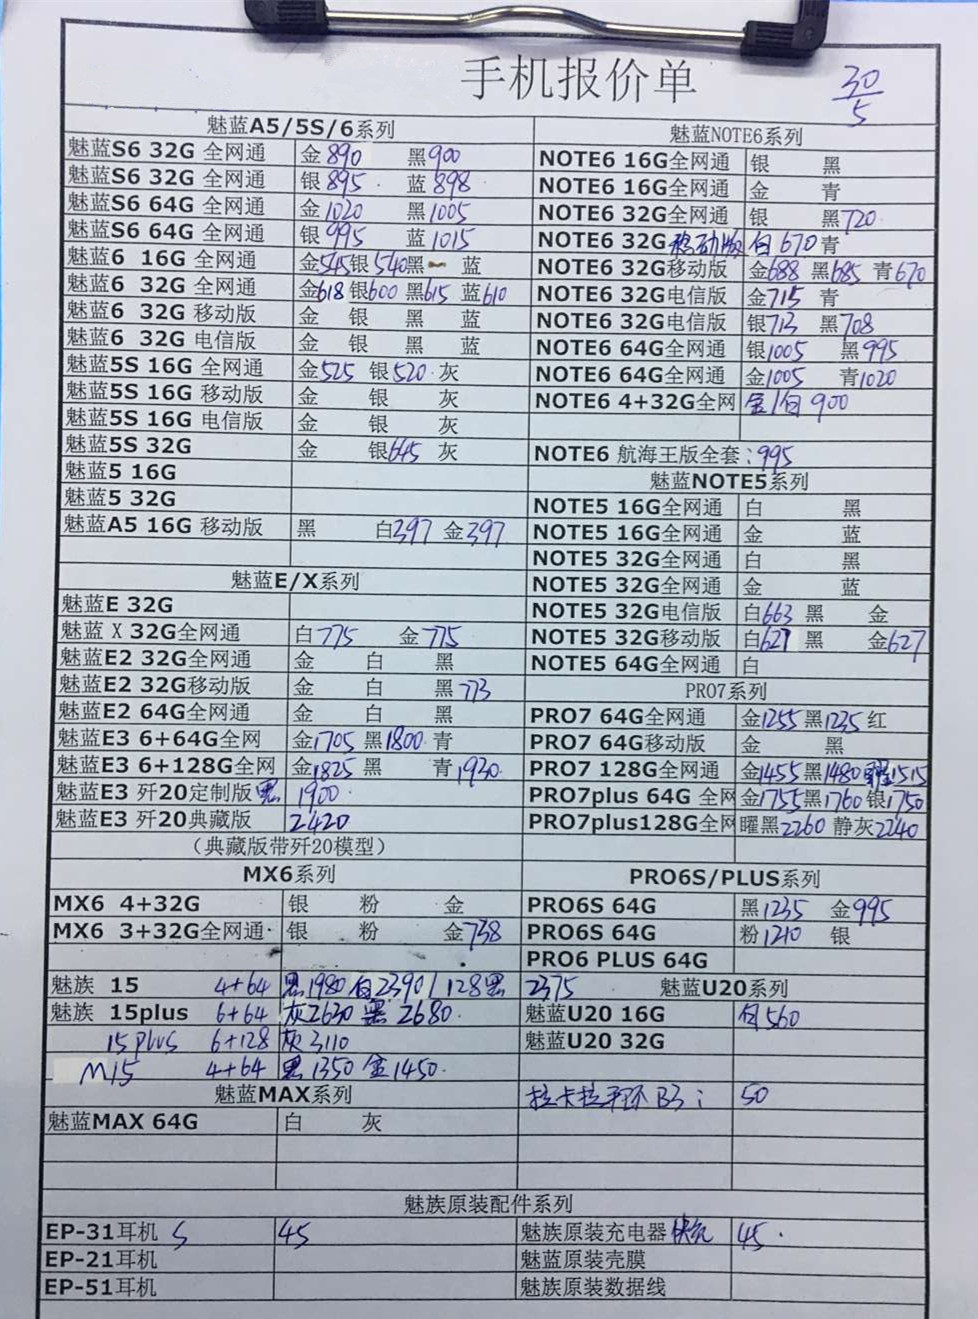 手机报价单
30/5
魅蓝A5/5S/6系列
魅蓝S6 32G 全网通 金890 黑900
魅蓝S6 32G 全网通 银895 蓝898
魅蓝S6 64G 全网通 金1020 黑1005
魅蓝S6 64G 全网通 银995 蓝1015
魅蓝6 16G 全网通 金545 银540 黑 蓝
魅蓝6 32G 全网通 金618 银600 黑615 蓝610
魅蓝6 32G 移动版 金 银 黑 蓝
魅蓝6 32G 电信版 金 银 黑 蓝
魅蓝5S 16G 全网通 金525 银520 灰
魅蓝5S 16G 移动版 金 银 灰
魅蓝5S 16G 电信版 金 银 灰
魅蓝5S 32G 金 银645 灰
魅蓝5 16G
魅蓝5 32G
魅蓝A5 16G 移动版 黑 白397 金397
魅蓝E/X系列
魅蓝E 32G
魅蓝 X 32G全网通 白775 金775
魅蓝E2 32G全网通 金 白 黑
魅蓝E2 32G移动版 金 白 黑773
魅蓝E2 64G全网通 金 白 黑
魅蓝E3 6+64G全网 金1705 黑1800 青
魅蓝E3 6+128G全网 金1825 黑 青1930
魅蓝E3 歼20定制版黑 1900
魅蓝E3 歼20典藏版 2420
（典藏版带歼20模型）
MX6系列
MX6 4+32G 银 粉 金
MX6 3+32G全网通 银 粉 金738
魅族 15 4+64 黑1980 白2390/128黑 2375
魅族 15plus 6+64 灰2630 黑2680
15plus 6+128 灰3110
M15 4+64 黑1350 金1450
魅蓝MAX系列
魅蓝MAX 64G 白 灰
魅蓝NOTE6系列
NOTE6 16G全网通 银 黑
NOTE6 16G全网通 金 青
NOTE6 32G全网通 银 黑720
NOTE6 32G移动版 白670 青
NOTE6 32G移动版 金688 黑685 青670
NOTE6 32G电信版 金715 青
NOTE6 32G电信版 银713 黑708
NOTE6 64G全网通 银1005 黑995
NOTE6 64G全网通 金1005 青1020
NOTE6 4+32G全网 金/白 900
NOTE6 航海王版全套：995
魅蓝NOTE5系列
NOTE5 16G全网通 白 黑
NOTE5 16G全网通 金 蓝
NOTE5 32G全网通 白 黑
NOTE5 32G全网通 金 蓝
NOTE5 32G电信版 白663 黑 金
NOTE5 32G移动版 白627 黑 金627
NOTE5 64G全网通 白
PRO7系列
PRO7 64G全网通 金1255 黑1235 红
PRO7 64G移动版 金 黑
PRO7 128G全网通 金1455 黑1480 1515
PRO7plus 64G 全网 金1755 黑1760 银1750
PRO7plus128G全网 曜黑2260 静灰2240
PRO6S/PLUS系列
PRO6S 64G 黑1235 金995
PRO6S 64G 粉1210 银
PRO6 PLUS 64G
魅蓝U20系列
魅蓝U20 16G 白560
魅蓝U20 32G
拉卡拉手环 B3： 50
魅族原装配件系列
EP-31耳机 S 45
EP-21耳机
EP-51耳机
魅族原装充电器快充 45
魅蓝原装壳膜
魅族原装数据线